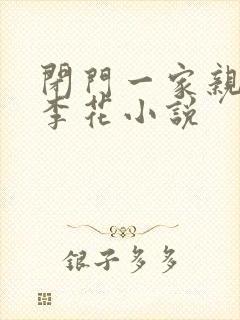 閉門一家親
李花小説
銀子多多